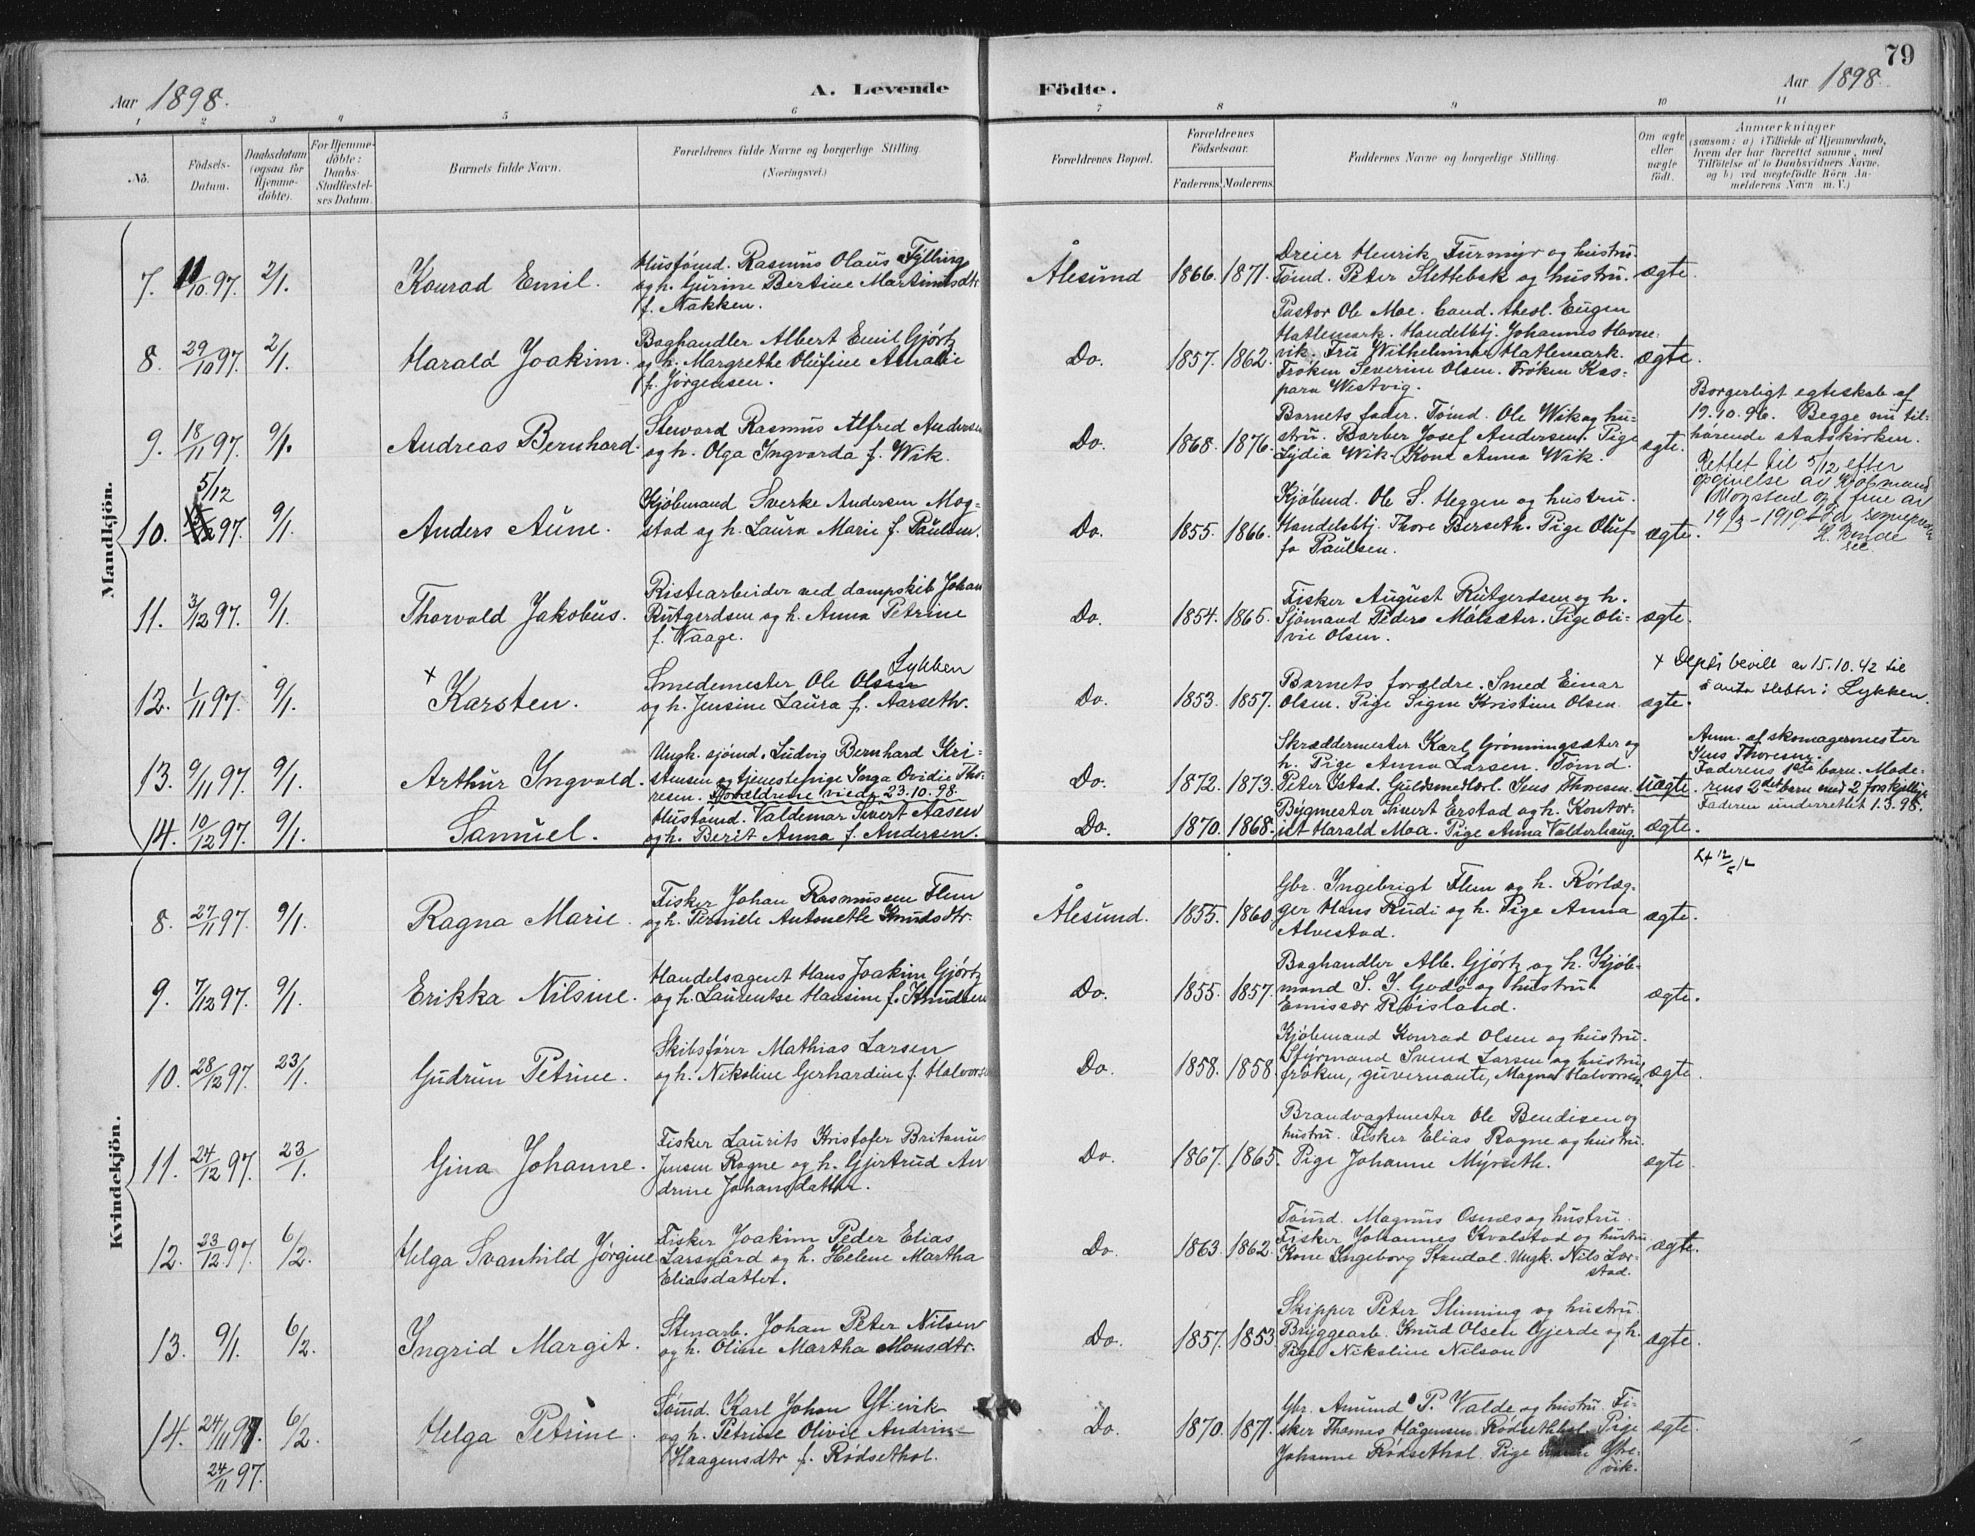 79
Aar 1898.
A. Levende
Födte.
Aar 1898.
1 2 3 4 5 6 7 8 9 10 11
No.
Födsels-
Datum.
Daabsdatum
(ogsaa for
Hjemme-
döbte).
For Hjemme-
döbte:
Daabs-
Stadfæstel-
ses Datum.
Barnets fulde Navn.
Forældrenes fulde Navne og borgerlige Stilling.
(Næringsvei.)
Forældrenes Bopæl.
Forældrenes
Födselsaar.
Faderens. Moderens.
Faddernes Navne og borgerlige Stilling.
Om ægte
eller
uægte
födt.
Anmærkninger
(saasom: a) i Tilfælde af Hjemmedaab,
hvem der har forrettet samme, med
Tilföielse af to Daabsvidners Navne,
og b) ved uegtefödte Börn An-
melderens Navn m. V.)
Mandkjön.
7. 11/10 97. 2/1. Konrad Emil.
Husfømd. Rasmus Olaus Fylling
og h. Gurine Bertine Martinusdtr
f. Nakken.
Ålesund 1866. 1871.
Dreier Henrik Furmyr og hustru.
Tømd. Peter Slettebak og hustru.
ægte.
8. 29/10 97. 2/1. Harald Joakim.
Boghandler Albert Emil Gjørtz
og h. Margrethe Olufine Amalie
f. Jørgensen.
Do. 1857. 1862.
Pastor Ole Moe. Cand. theol. Eugen
Hatlemark. Handelsbtj. Johannes Havne-
vik. Fru Wilhelmine Hatlemark.
Frøken Severine Olsen. Frøken Kas-
para Westvig.
ægte.
9. 18/11 97. 9/1. Andreas Bernhard.
Steward Rasmus Alfred Andersen
og h. Olga Ingvarda f. Wik.
Do. 1868. 1876.
Barnets fader. Tømd. Ole Wik og hu-
stru. Barber Josef Andersen. Pige
Lydia Wik. Kone Anna Wik.
ægte.
Borgerligt egteskab af
19.10.96. Begge nu til-
hørende statskirken.
5/12
10. 97. 9/1. Anders Aune.
Kjøbmand Sverke Andersen Mog-
stad og h. Laura Marie f. Paulsen.
Do. 1855. 1866.
Kjøbmd. Ole S. Heggen og hustru.
Handelsbtj. Thore Berseth. Pige Oluf-
fa Paulsen.
ægte.
Rettet til 5/12 efter
opgivelse av Kjøbmand
Mogstad
11. 3/12 97. 9/1. Thorvald Jakobus.
Ristearbeider ved dampskib Johan
Rutgerdsen og h. Anna Petrine
f. Naage.
Do. 1854. 1865.
Fisker August Rutgerdsen og h.
Sjømand Peders Målsæter. Pige Oli-
vie Olsen.
ægte.
12. 1/11 97. 9/1. x Karsten.
Lykken
Smedemester Ole Olsen
og h. Jensine Laura f. Aarseth.
Do. 1853. 1857.
Barnets forældre. Smed Einar
Olsen. Pige Signe Kristine Olsen.
ægte.
x Depts bevill. av 15.10.42 til
å anta slektsn: Lykken.
13. 9/11 97. 9/1. Arthur Ingvald.
Ungk. sjømd. Ludvig Bernhard Kri-
stensen og tjenestepige Inga Ovidie Tho-
resen. Forældrene viede 23.10.98.
Do. 1872. 1873.
Skræddermester Karl Grønningsæter og
h. Pige Anna Larsen. Tømd.
Peter Istad. Guldsmedlærl. Jens Thoresen.
uægte.
Anm. af skomagermester
Jens Thoresen.
Faderens 1ste barn. Mode-
rens 2det barn med 2 forskjellige.
Faderen underrettet 1.3.98.
14. 10/12 97. 9/1. Samuel.
Hustømd. Valdemar Sivert Aasen
og h. Berit Anna f. Andersen.
Do. 1870. 1868.
Bygmester Sivert Erstad og h. Kontor-
ist Harald Moa. Pige Anna Valderhaug.
ægte.
Kvindekjön.
8. 27/11 97. 9/1. Ragna Marie.
Fisker Johan Rasmussen Flem
og h. Pernille Antonette Knudsdtr.
Ålesund. 1855. 1860.
Gbr. Ingebrigt Flem og h. Rørlæg-
ger Hans Rudi og h. Pige Anna
Alvestad.
ægte.
9. 7/12 97. 9/1. Erikka Nilsine.
Handelsagent Hans Joakim Gjørtz
og h. Laurentse Hansine f. Knudsen
Do. 1855. 1857.
Boghandler Alb. Gjørtz og h. Kjøb-
mand S. J. Godø og hustru.
Emissær Røisland.
ægte.
10. 28/12 97. 23/1. Gudrun Petrine.
Skibsfører Mathias Larsen
og h. Nikoline Gerhardine f. Halvorsen
Do. 1858. 1858.
Kjøbmand Konrad Olsen og hustru.
Styrmand Svend Larsen og hustru
frøken, guvernante, Magna Halvorsen.
ægte.
11. 24/12 97. 23/1. Gina Johanne.
Fisker Laurits Kristofer Britanus
Jensen Rogne og h. Gjertrud An-
drine Johansdatter.
Do. 1867. 1865.
Brandvagtmester Ole Bendixen og
hustru. Fisker Elias Rogne og hustru.
Pige Johanne Myrseth.
ægte.
12. 23/12 97. 6/2. Helga Svanhild Jørgine
Fisker Joakim Peder Elias
Larsgård og h. Helene Martha
Eliasdatter.
Do. 1863. 1862.
Tømd. Magnus Osnes og hustru.
Fisker Johannes Kvalstad og hustru
Kone Ingeborg Standal. Ungk. Nils Lær-
stad.
ægte.
13. 9/1. 6/2. Ingrid Margit.
Stenarb. Johan Peter Nilsen
og h. Oline Martha Monsdtr.
Do. 1857. 1853.
Skipper Peter Slinning og hustru.
Bryggearb. Knud Olsen Gjerde og h.
Pige Nikoline Nilsen
ægte.
14. 24/11 97. 6/2. Helga Petrine.
Sømd. Karl Johan
og h. Petrine Olivie Andrine
Haagensdtr f. Rødsethol.
Do. 1870. 1871.
Gbr. Amund P. Valde og hustru. Fi-
sker Thomas Hågensen Rødsethol. Pige
Johanne Rødsethol. Pige
vik.
ægte.
24/11 97.